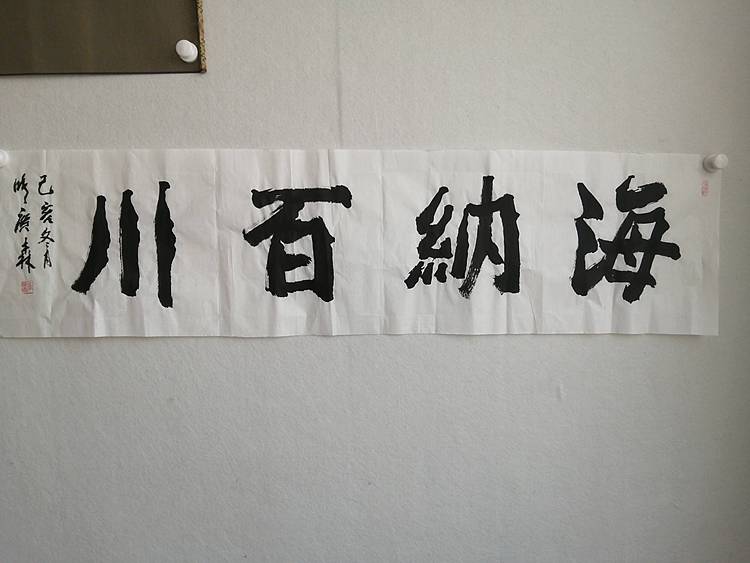 海納百川
己亥冬月
廣森